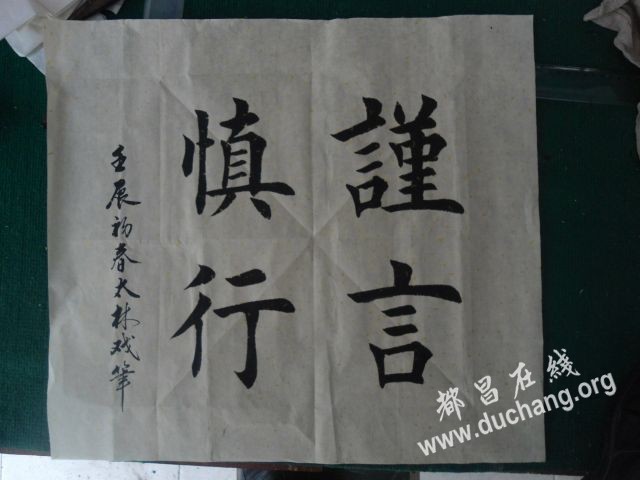 謹言
慎行
壬辰初春太林戏筆
都昌在线
www.duchang.org